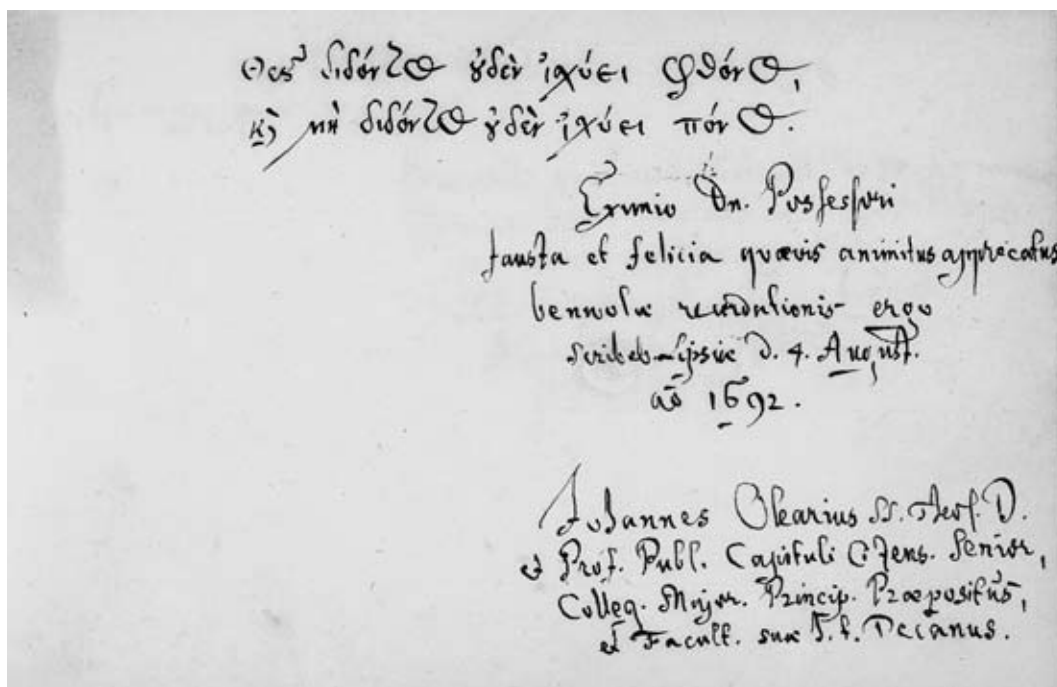 Θεȣ͂ διδόντ⊙ ȣ̓δὲν ἰχύει φθόν⊙,
κ) μὴ διδόντ⊙ ȣ̓δὲν ἰχύει πόν⊙.
Eximio Dn. Possessori
fausta et felicia quævis animitus apprecatus
benevolæ recordationis ergo
scribeb. Lipsiæ d. 4. August.
aõ 1692.
Johannes Olearius SS. Theol. D.
et Prof. Publ. Capituli Cizens. Senior,
Colleg. Major. Princip. Præpositus,
et Facult. suæ T. t. Decanus.